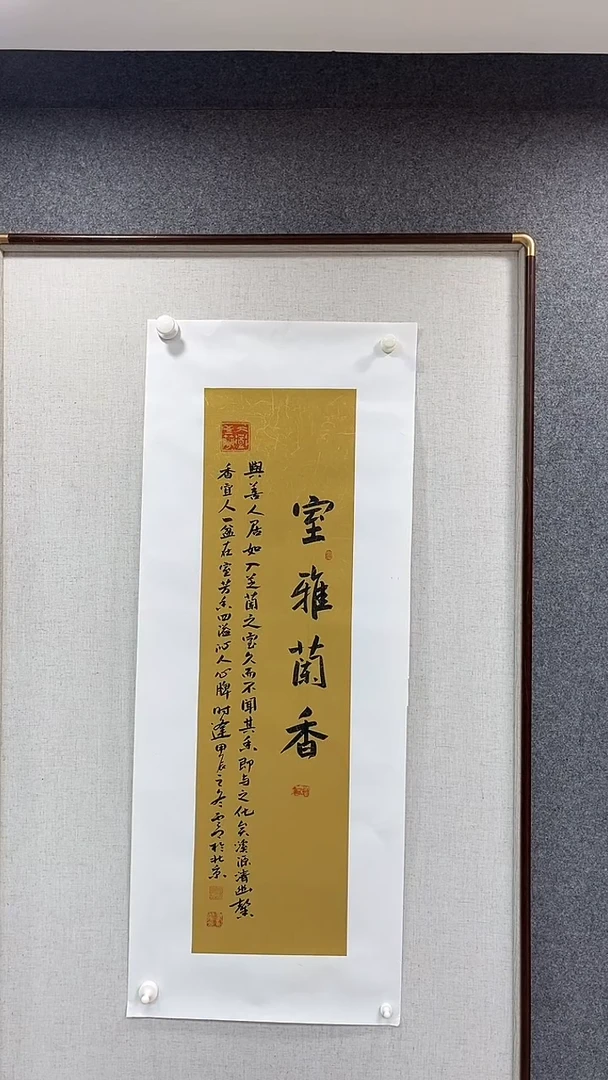 室雅蘭香
與善人居如入芝蘭之室久而不聞其香即与之化矣溪源清幽馨
香宜人一盆在室芳香四溢沁人心脾時逢甲辰之冬 於北京